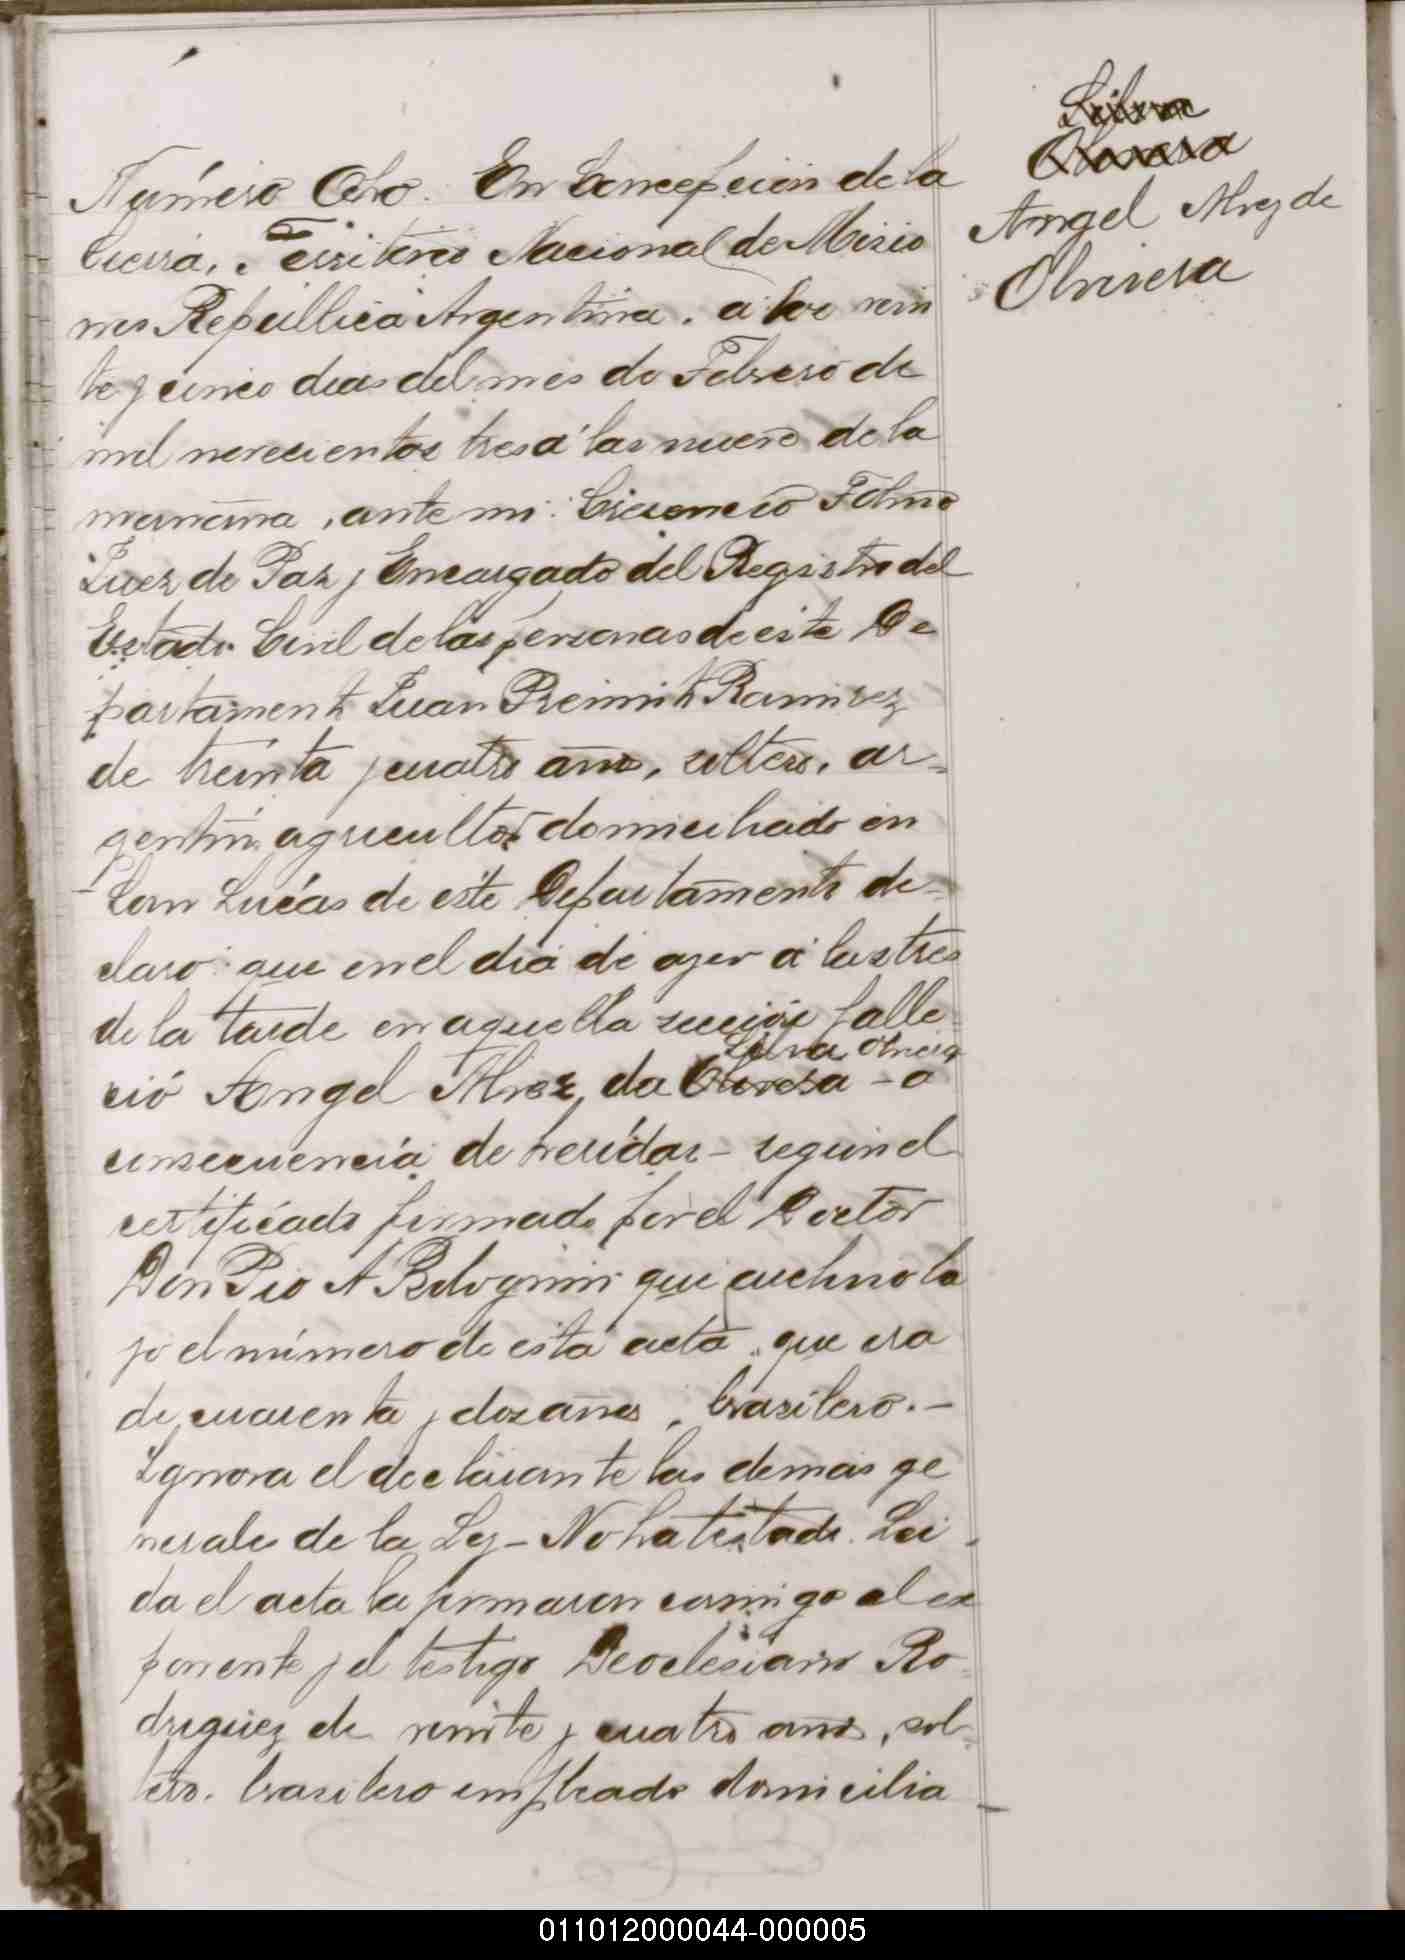 Angel Alvez de
Oliveira
Número Ocho. En Concepcion de la
Sierra, Territorio Nacional de Misio
nes República Argentina, a los vein
te y cinco dias del mes de Febrero de
mil novecientos tres á las nueve de la
mañana, ante mi:
Juez de Paz y Encargado del Registro del
Estado Civil de las personas de este De
partamento Juan Ramirez
de treinta y cuatro años, soltero, ar-
gentino agricultor domiciliado en
San Lucas de este Departamento de-
claró: que en el dia de ayer á las tres
de la tarde en aquella seccion falle
Silva Oliveira
ció Angel Alvez da Oliveira - a
consecuencia de heridas - segun el
certificado firmado por el Doctor
Don Pio A que archivo ba
jo el número de esta acta, que era
de cuarenta y dos años, brasilero.-
Ignora el declarante las demas ge
nerales de la Ley - No ha testado. Lei
da el acta la firmaron conmigo el ex
ponente y el testigo Deoclesiano Ro
driguez de veinte y cuatro años, sol-
tero. brasilero empleado domicilia
011012000044-000005